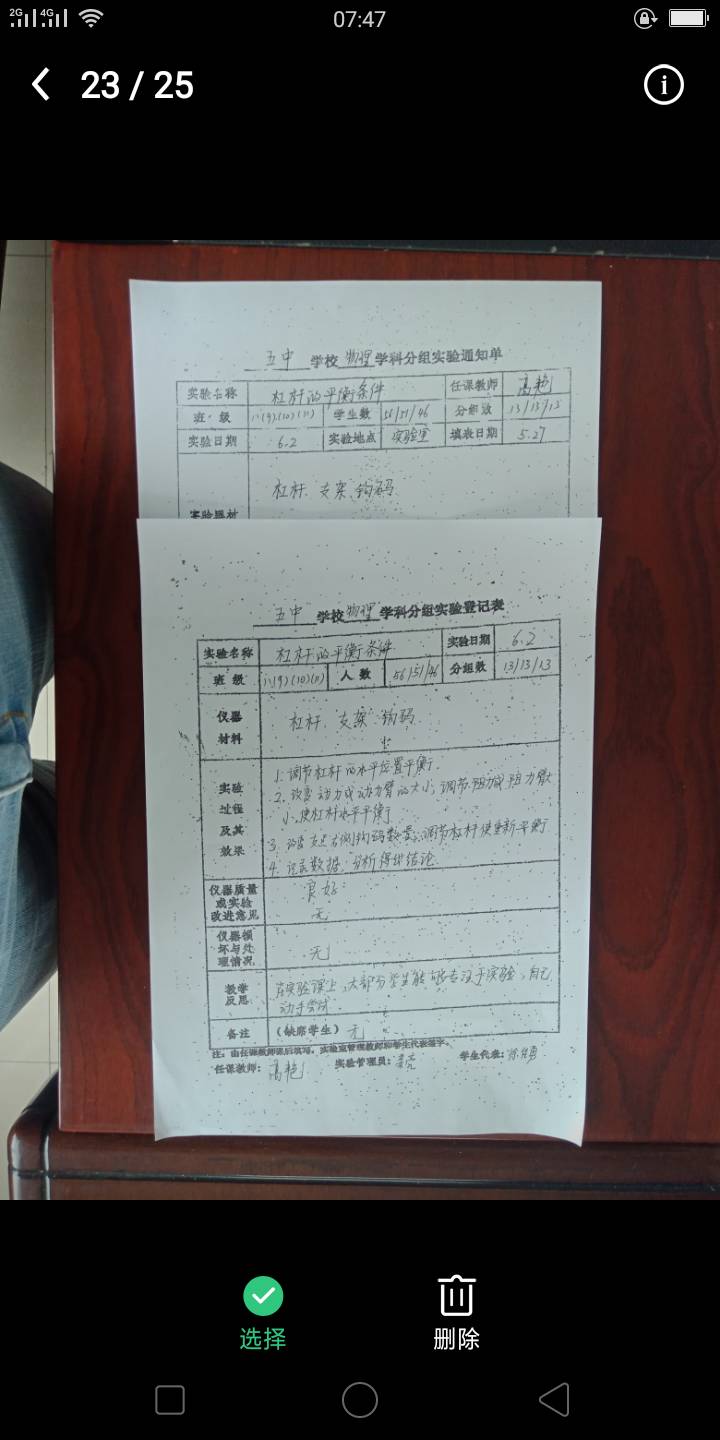 2G 4G 07:47
23 / 25
五中 学校 物理 学科分组实验通知单
实验名称 杠杆的平衡条件 任课教师 高艳
班 级 (9)(10)(11) 学生数 56/51/46 分组数 13/13/13
实验日期 6.2 实验地点 实验室 填表日期 5.27
杠杆、支架、钩码
实验器材
五中 学校 物理 学科分组实验登记表
实验名称 杠杆的平衡条件 实验日期 6.2
班 级 (9)(10)(11) 人 数 56/51/46 分组数 13/13/13
仪器 材料 杠杆、支架、钩码
实验 过程 及其 效果
1. 调节杠杆的水平位置平衡.
2. 改变动力或动力臂的大小,调节阻力或阻力臂大
小,使杠杆水平平衡
3. 支点右侧钩码数量,调节杠杆使重新平衡
4. 记录数据,分析得出结论.
仪器质量 或实验 改进意见 良好
无
仪器损 坏与处 理情况 无
教学 反思 在实验课上,大部分学生能够专注于实验,自己
动手尝试.
备注 (缺席学生) 无
注:由任课教师课后填写,实验室管理教师和学生代表签字。
任课教师: 高艳 实验管理员: 学生代表:
选择 删除